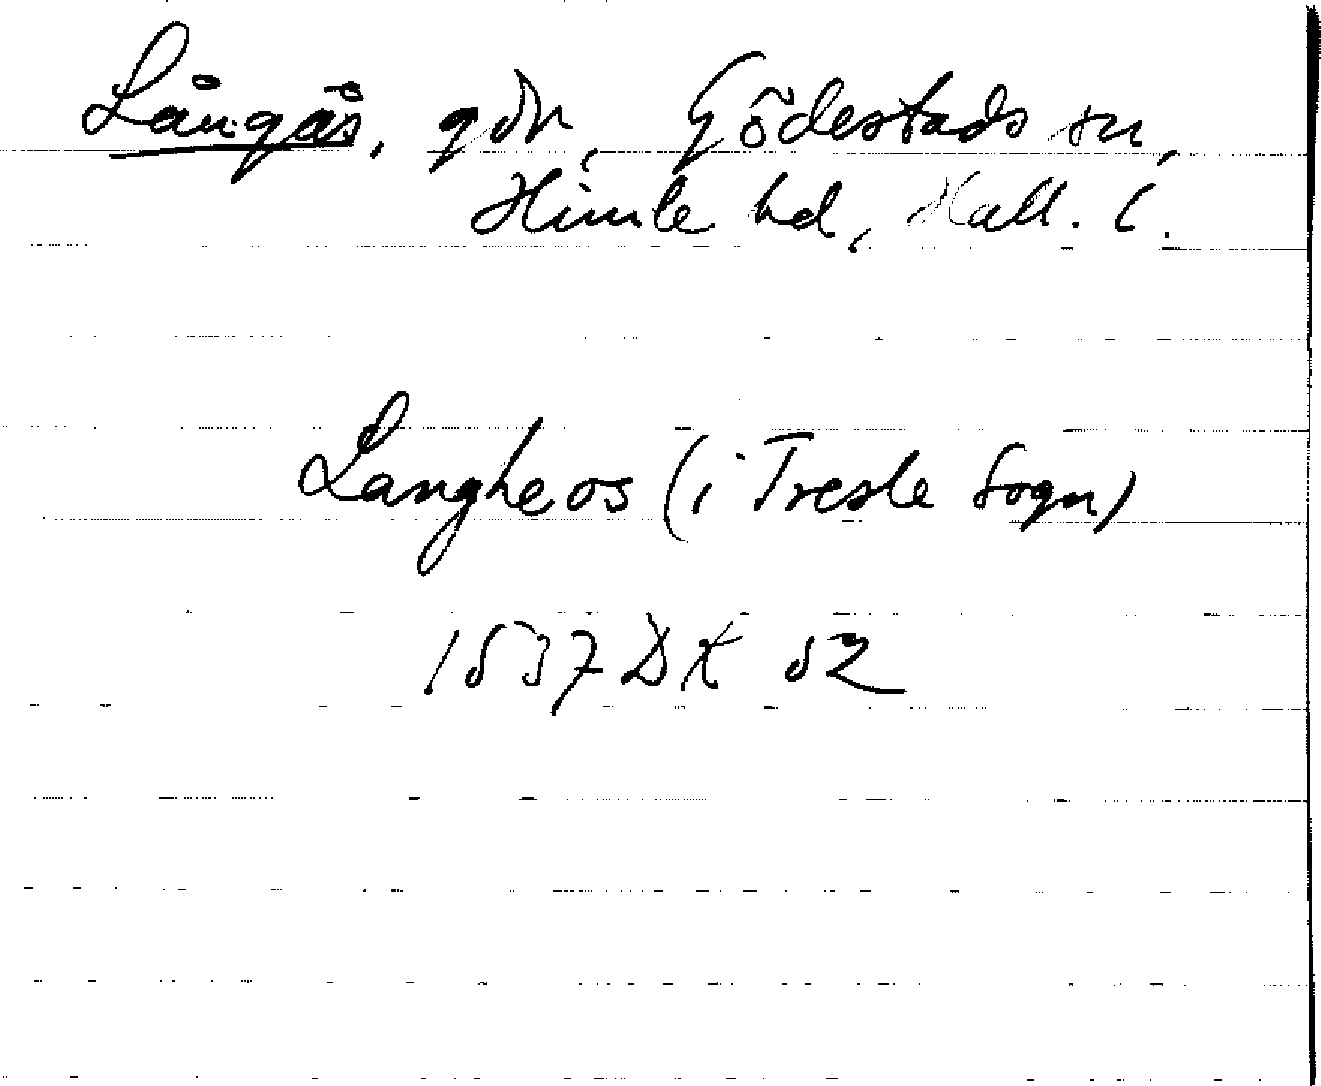 Långås, gdr, Gödestads sn,
Himle hd, Hall. l.
Langheos (i Tresle Sogn)
1537 DK 52